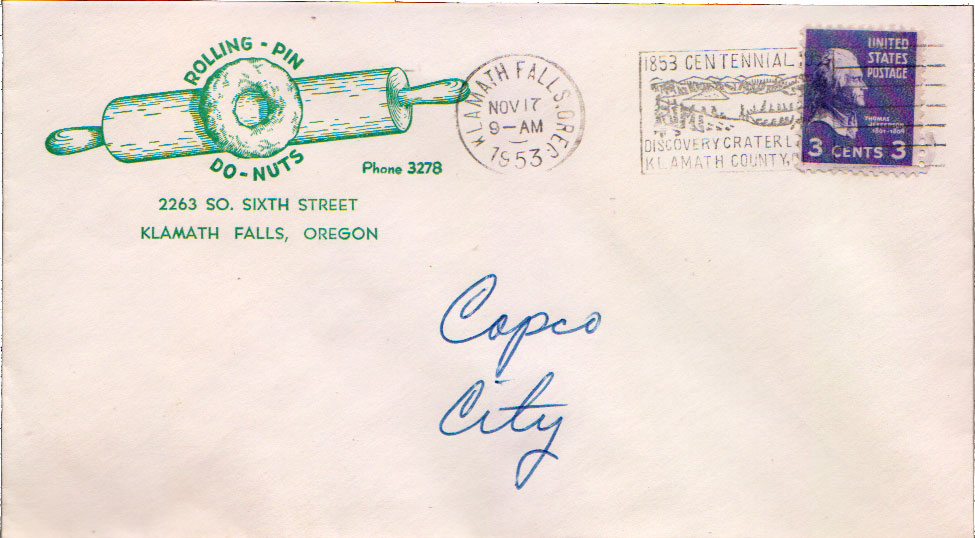 ROLLING-PIN
DO-NUTS
Phone 3278
2263 SO. SIXTH STREET
KLAMATH FALLS, OREGON
KLAMATH FALLS, OREG.
NOV 17
9-AM
1953
1853 CENTENNIAL
DISCOVERY CRATER L
KLAMATH COUNTY,
UNITED
STATES
POSTAGE
THOMAS
JEFFERSON
1801-1809
3 CENTS 3
Copco
City